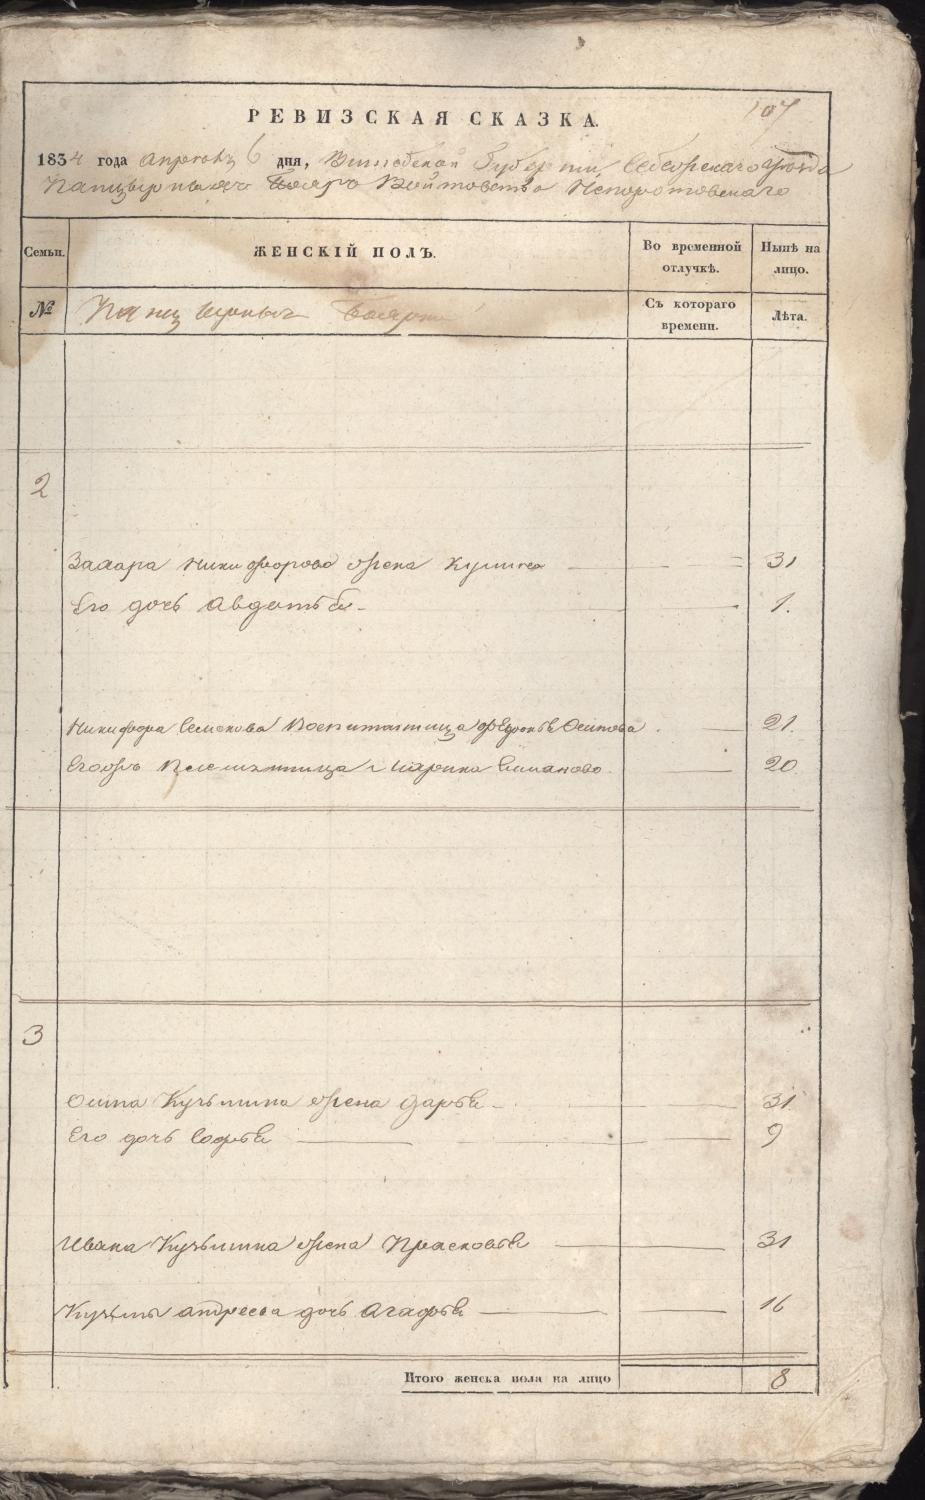 107
РЕВИЗСКАЯ СКАЗКА.
1834 года апреля 6 дня, Витебской Губернии Себежскаго уезда
Панцырныхъ Бояръ Войтовства Непоротовскаго
Семьи. ЖЕНСКІЙ ПОЛЪ. Во временной отлучкѣ. Нынѣ на лицо.
№ Панцырныхъ Бояръ Съ котораго времени. Лѣта.
2
Захара Никифорова жена 31
Его дочь Авдотья 1.
Никифора Семенова Воспитанница Осипова 21.
Егожъ Племянница Марина 20
3
Осипа Кузьмина жена Дарья 31
Его дочь Софья 9
Ивана Кузьмина жена Прасковья 31
Кузьмы Андреева дочь Агафья 16
Итого женска пола на лицо 8